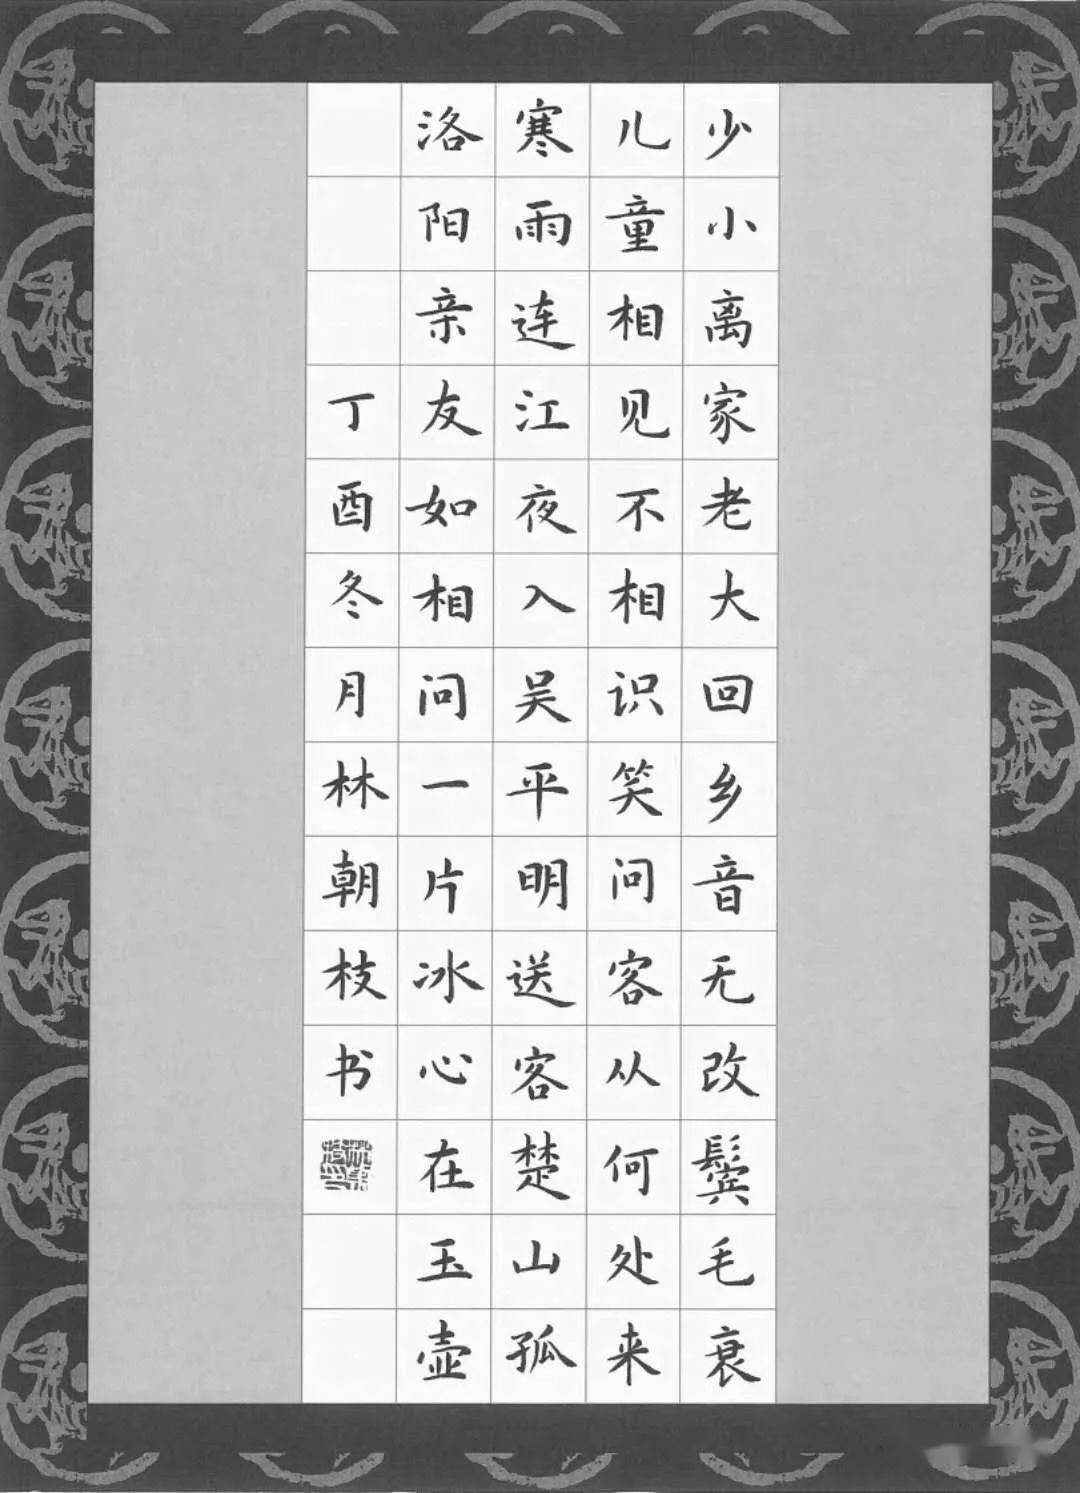 少小离家老大回乡音无改鬓毛衰
儿童相见不相识笑问客从何处来
寒雨连江夜入吴平明送客楚山孤
洛阳亲友如相问一片冰心在玉壶
丁酉冬月林朝枝书